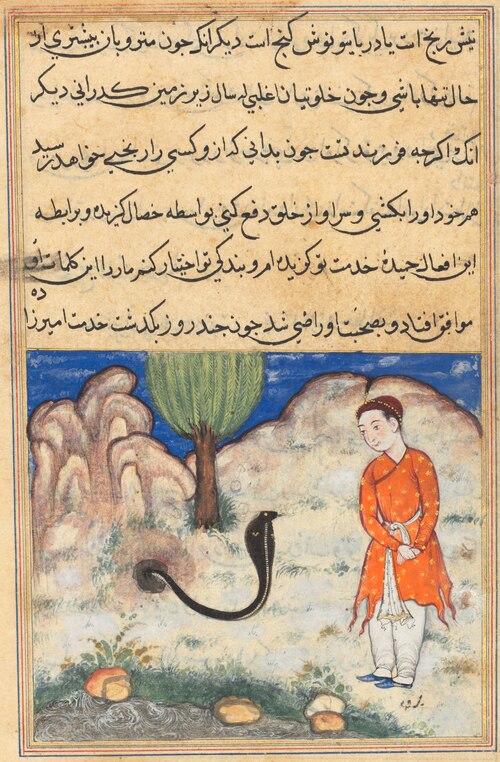 نیش رنج است یا دریا بتو نوش گنج است دیگر انک چون مترویان بیشتری از
حال تنها باشی و چون خلوتیان اغلبی له سال زیر زمین کذرانی دیگر
انک اگرچه فرزند تست چون بدانی که ازو کسی را رنجی خواهد رسید
هم خود او را بکشی و سر او از خلق دفع کنی بواسطه خصال گزیده و برابطه
این افعال حمیده خدمت تو گزیده ام و بندگی تو اختیار کنم مار را این کلمات او
موافق افتاد و بصحبت او راضی شد چون چند روز بگذشت خدمت امیرزاده